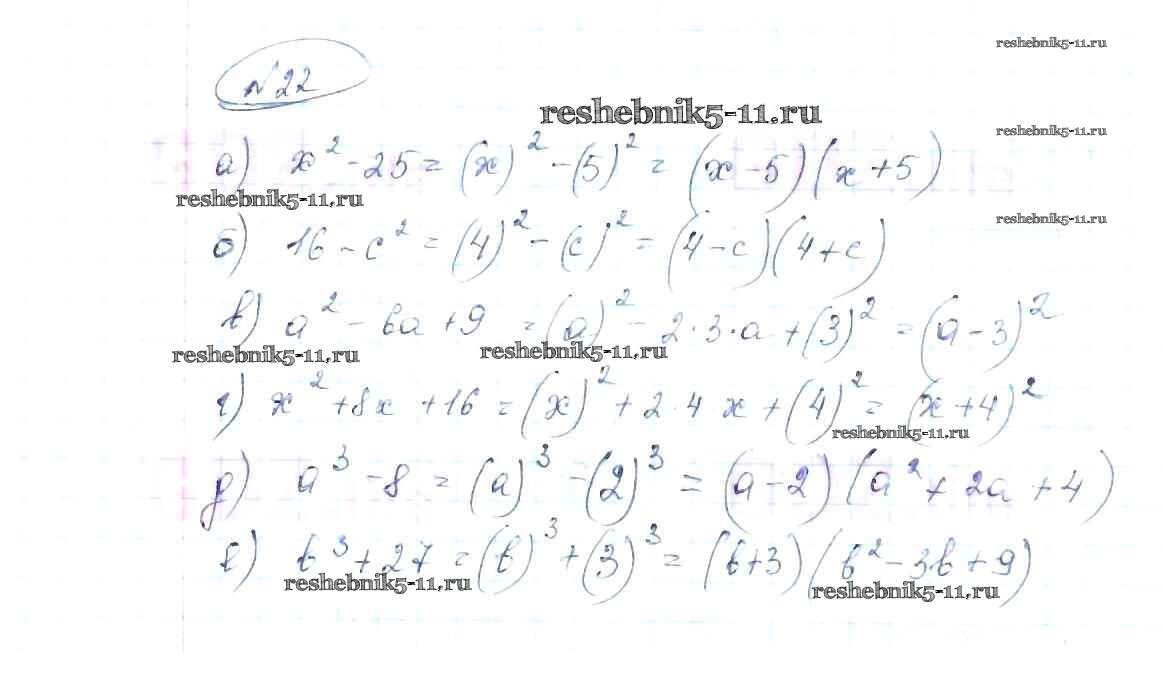 reshebnik5-11.ru
№22
reshebnik5-11.ru
reshebnik5-11.ru
а) x² - 25 = (x)² - (5)² = (x - 5)(x + 5)
reshebnik5-11.ru
reshebnik5-11.ru
б) 16 - c² = (4)² - (c)² = (4 - c)(4 + c)
в) a² - 6a + 9 = (a)² - 2·3·a + (3)² = (a - 3)²
reshebnik5-11.ru reshebnik5-11.ru
г) x² + 8x + 16 = (x)² + 2·4 x + (4)² = (x + 4)²
reshebnik5-11.ru
д) a³ - 8 = (a)³ - (2)³ = (a - 2)(a² + 2a + 4)
е) b³ + 27 = (b)³ + (3)³ = (b + 3)(b² - 3b + 9)
reshebnik5-11.ru reshebnik5-11.ru